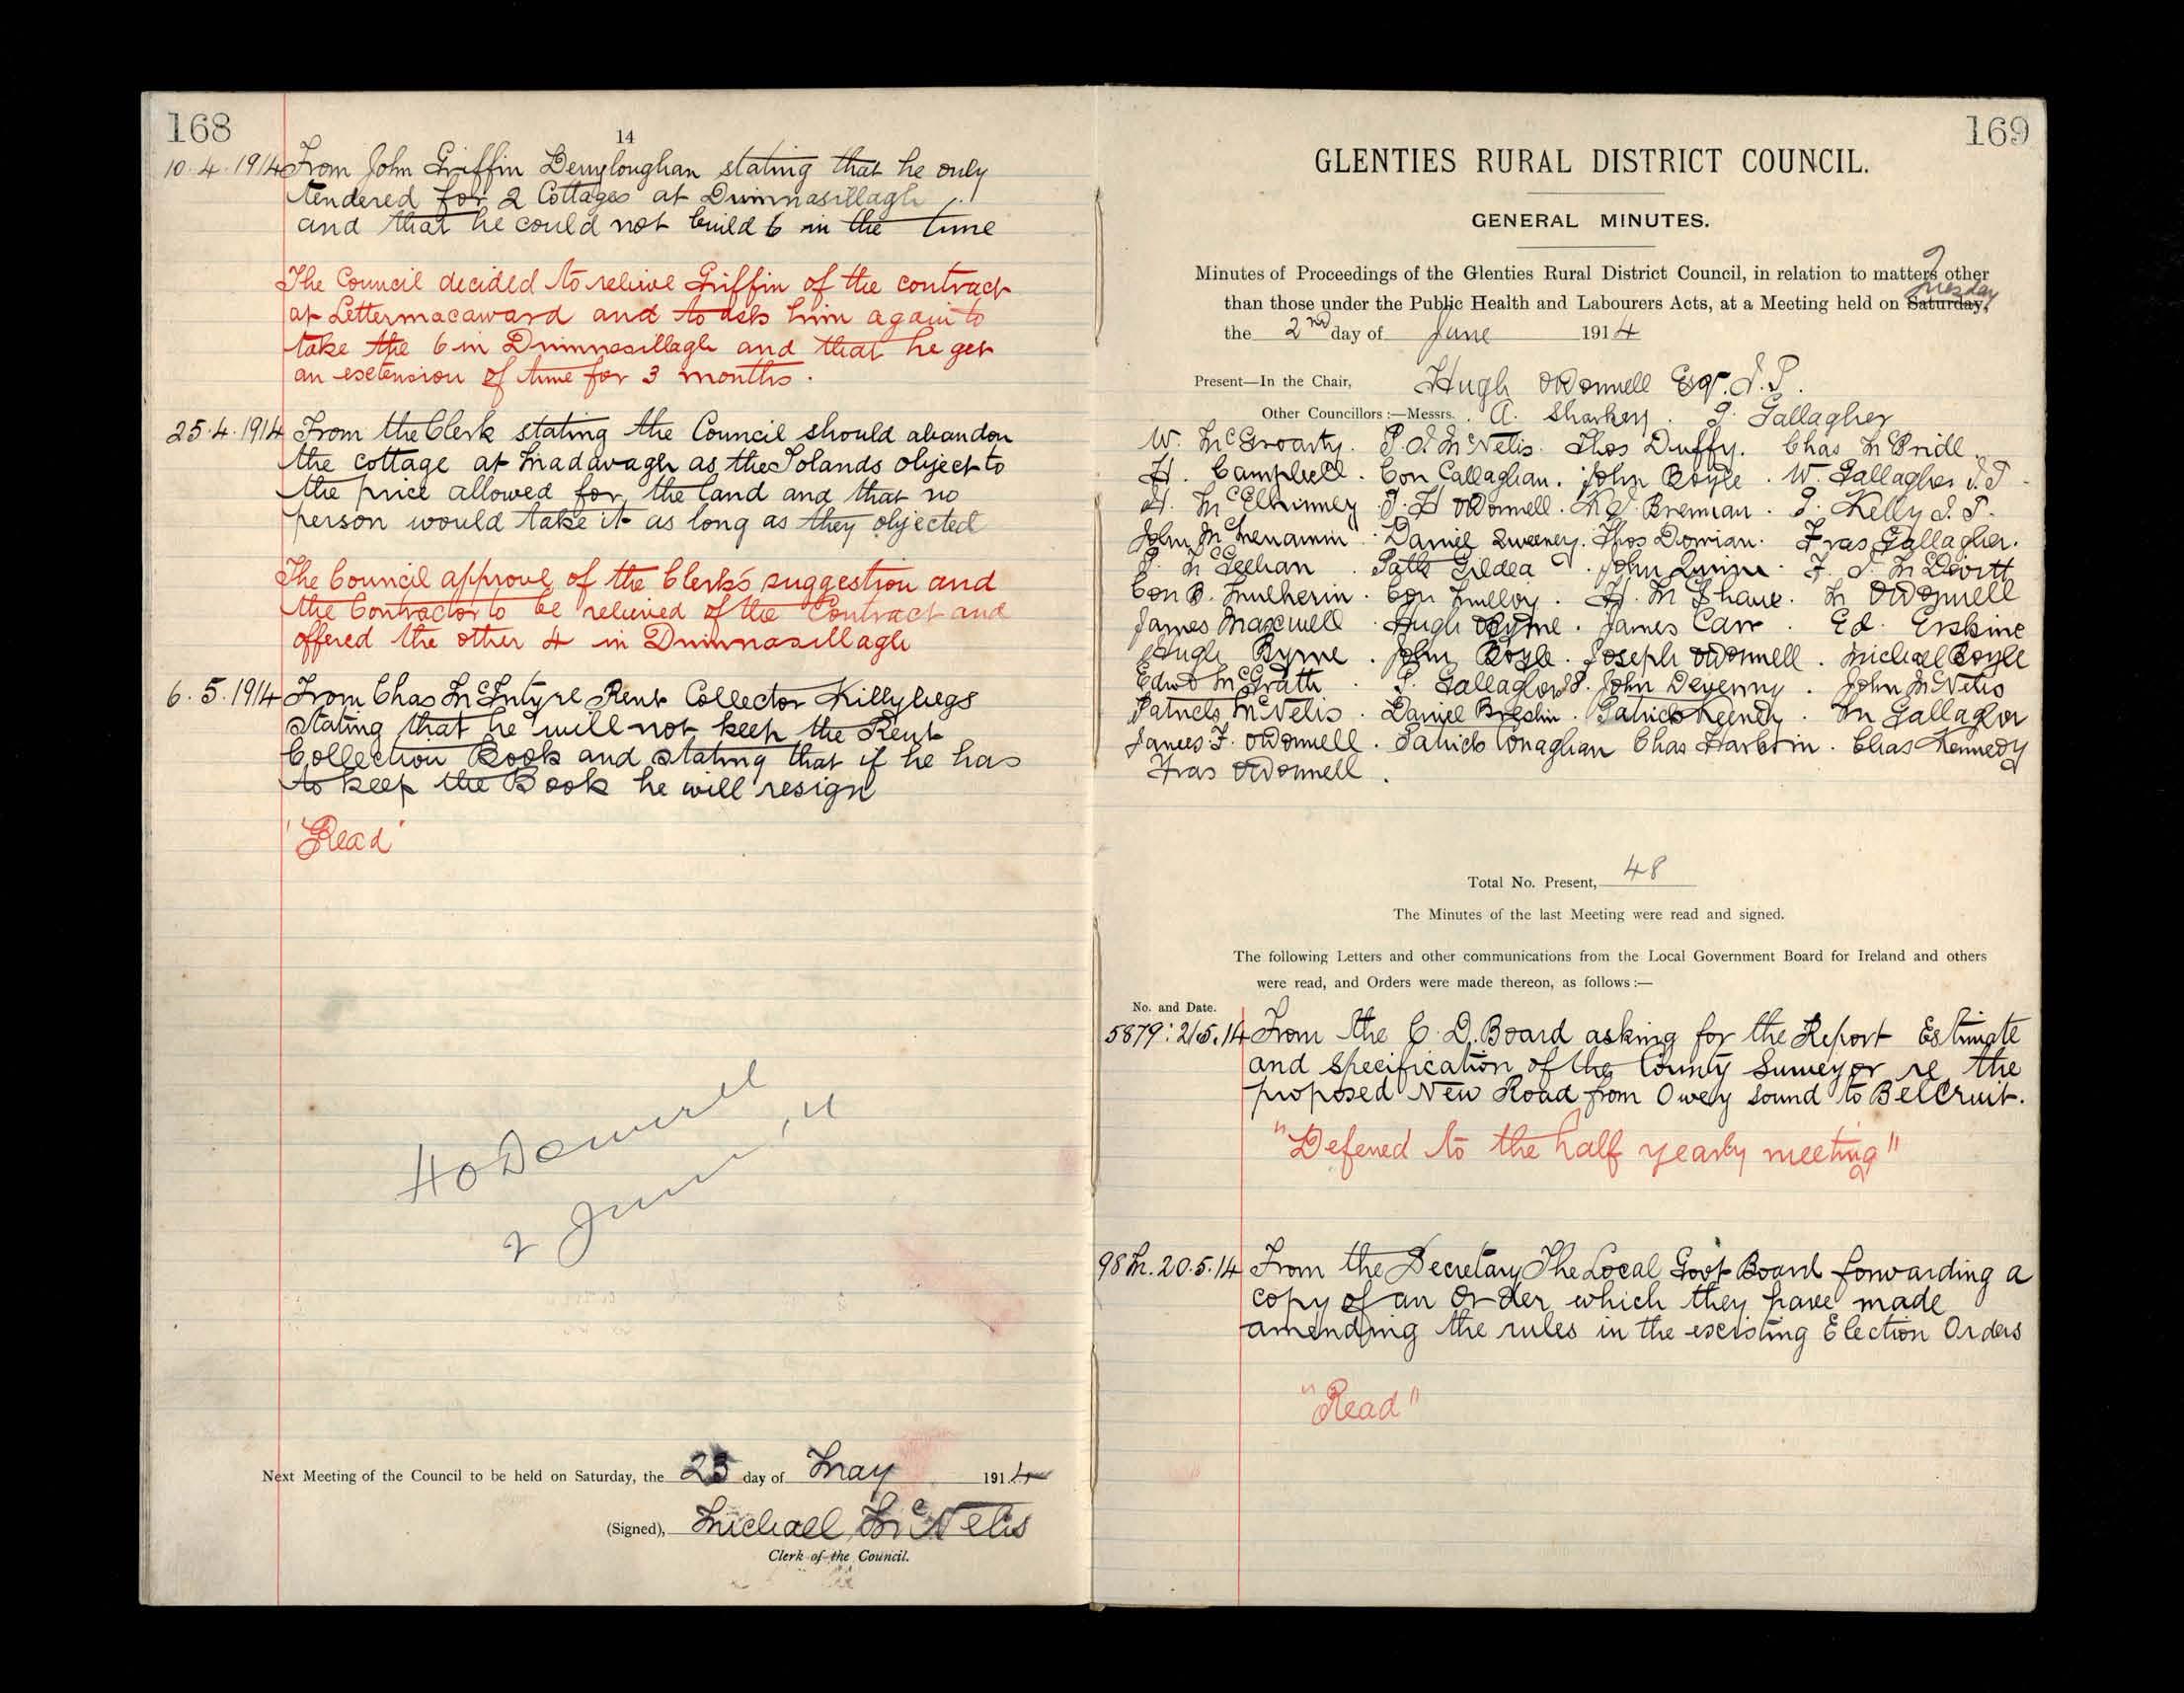 168
14
10.4.1914 From John Griffin Derryloughan stating that he only
tendered for 2 Cottages at Drimnasillagh
and that he could not build 6 in the time
The Council decided to relieve Griffin of the contract
at Lettermacaward and to ask him again to
take the 6 in Drimnasillagh and that he get
an extension of time for 3 months.
25.4.1914 From the Clerk stating the Council should abandon
the cottage at Madavagh as the Bolands object to
the price allowed for the land and that no
person would take it as long as they objected
The Council approve of the Clerk's suggestion and
the Contractor to be relieved of the Contract and
offered the other 4 in Drimnasillagh
6.5.1914 From Chas McIntyre Rent Collector Killybegs
stating that he will not keep the Rent
Collection Book and stating that if he has
to keep the Book he will resign
'Read'
H O Donnell
2 June
Next Meeting of the Council to be held on Saturday, the 23 day of May 1914
(Signed), Michael McNelis
Clerk of the Council.
169
GLENTIES RURAL DISTRICT COUNCIL.
GENERAL MINUTES.
Minutes of Proceedings of the Glenties Rural District Council, in relation to matters other
Tuesday
than those under the Public Health and Labourers Acts, at a Meeting held on Saturday,
the 2nd day of June 1914
Present—In the Chair, Hugh O'Donnell Esqr. J.P.
Other Councillors :—Messrs. A. Sharkey. P. Gallagher
W. McGroarty. P.J. McNelis. Thos Duffy. Chas McBride.
H. Campbell. Con Callaghan. John Boyle. W. Gallagher J.P.
H. McElhinney J.H O'Donnell. Brennan. P. Kelly J.P.
John McMenamin. Daniel Sweeney. Thos Dorrian. Fras Gallagher.
McGeehan. Patk Gildea. John Quinn. F. J. McDevitt
Con B. Mulherin. Con Mulloy. H. McShane. M O'Donnell
James Maxwell. Hugh Byrne. James Carr. Ed. Erskine
Hugh Byrne. John Boyle. Joseph O'Donnell. Michael Boyle
Edwd McGrath. P. Gallagher. John Devenny. John McNelis
Patrick McNelis. Daniel Breslin. Patrick Keeney. M Gallagher
James F. O'Donnell. Patrick Conaghan Chas Harkin. Chas Kennedy
Fras O'Donnell.
Total No. Present, 48
The Minutes of the last Meeting were read and signed.
The following Letters and other communications from the Local Government Board for Ireland and others
were read, and Orders were made thereon, as follows :—
No. and Date.
5879: 2/5.14 From the C.D. Board asking for the Report Estimate
and Specification of the County Surveyor re the
proposed New Road from Owey Sound to Belcruit.
"Deferred to the half yearly meeting"
98M. 20.5.14 From the Secretary The Local Govt Board forwarding a
copy of an Order which they have made
amending the rules in the existing Election Orders
"Read"